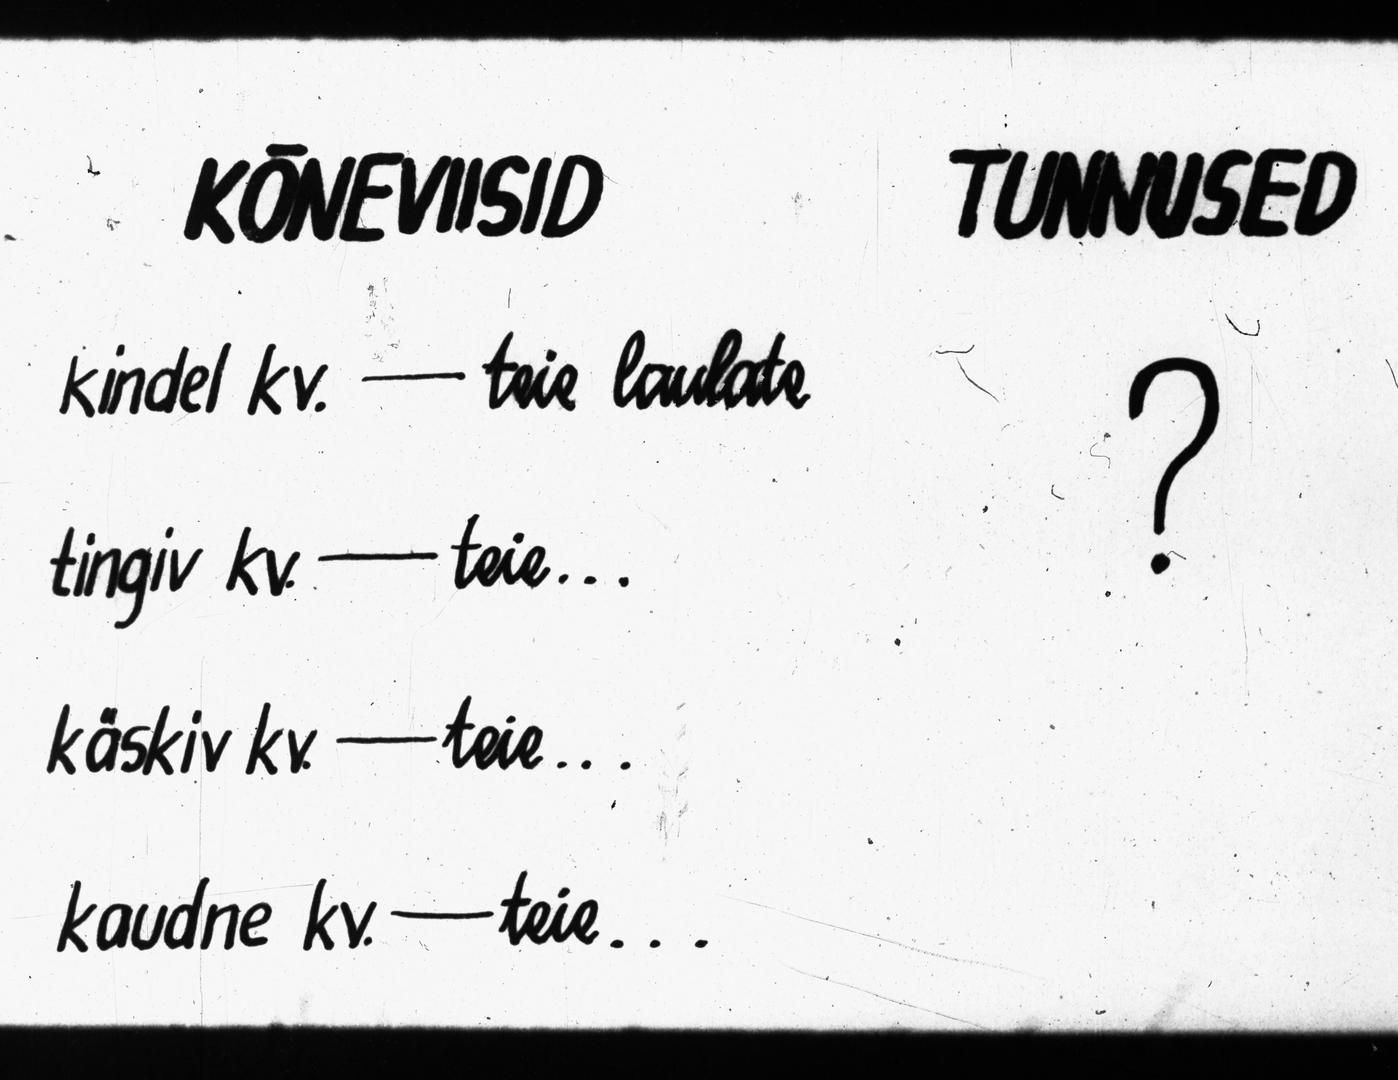 KÕNEVIISID TUNNUSED
kindel kv. — teie laulate ?
tingiv kv. — teie...
käskiv kv. — teie...
kaudne kv. — teie...